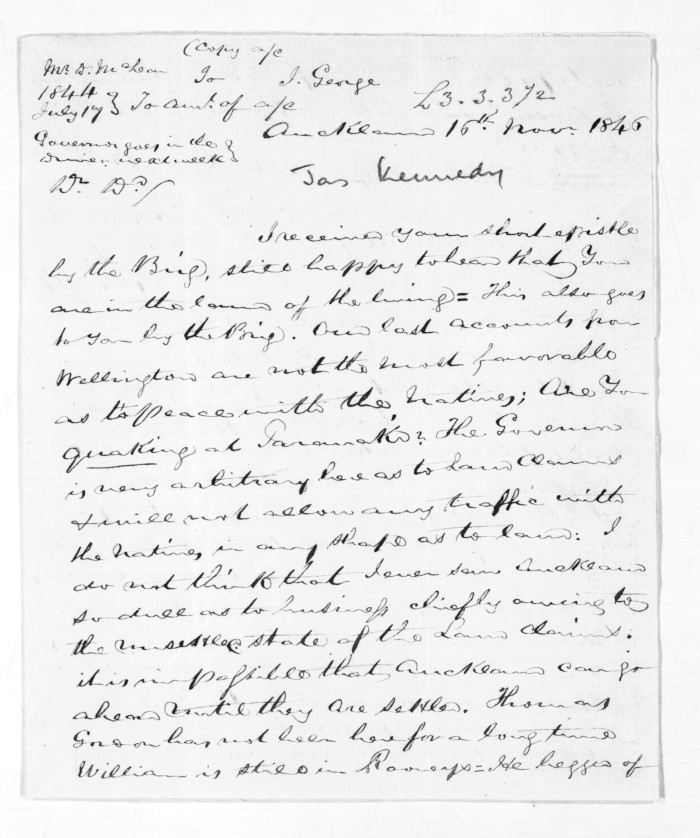 (Copy a/c
Mr. D. McLean To J. George
1844
July 17 } To amt. of a/c £3.3.3 1/2
Auckland 16th Novr. 1846
Governor goes in the }
Driver next week }
Dr Dd/
Jas Kennedy
I received your short epistle
by the Brig, still happy to hear that You
are in the land of the living = This also goes
to You by the Brig. Our last accounts from
Wellington are not the most favorable
as to peace with the Natives; Are You
quaking at Taranaki? The Governor
is very arbitrary here as to Land Claims
& will not allow any traffic with
the Natives in any shape as to land: I
do not think that I ever saw Auckland
so dull as to business chiefly owing to
the unsettled state of the Land Claims:
it is impossible that Auckland can go
ahead until they are settled. Thomas
Gordon has not been here for a long time
William is still in = He begged of